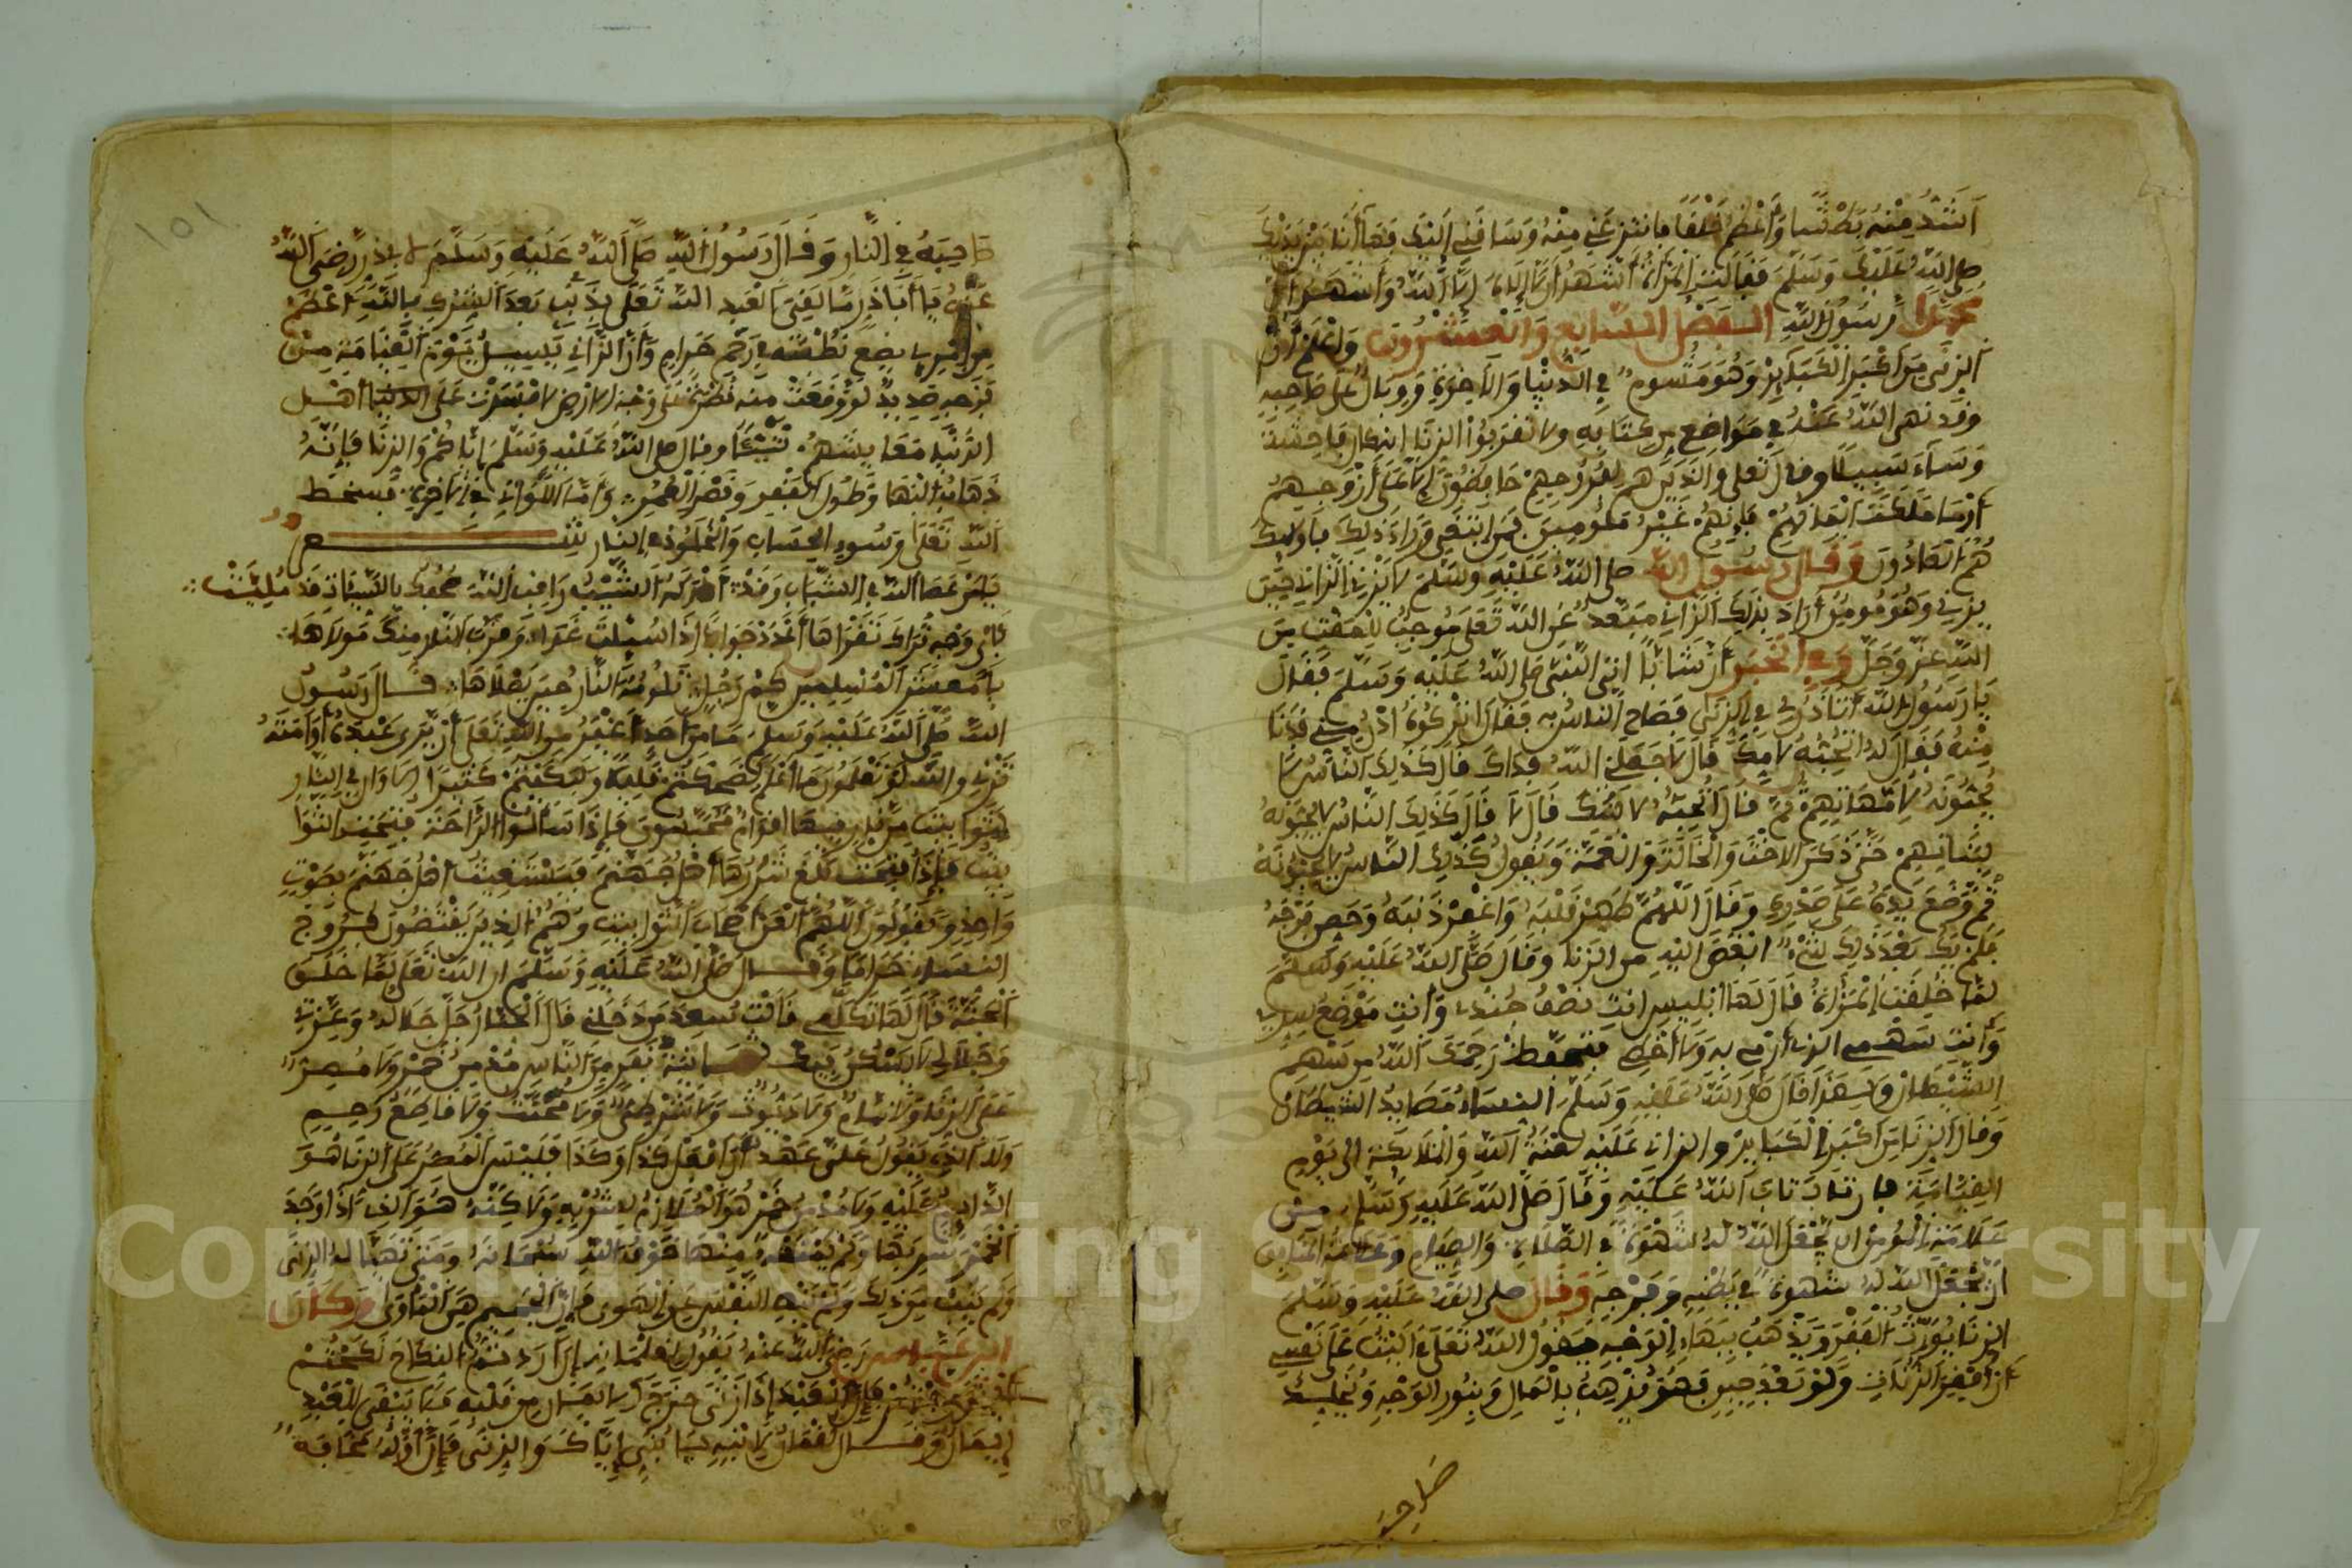 أشد منه بطشا وأعظم خلقا فانتزعني منه وساقني إليك فها أنا بين يديك
صلى الله عليك وسلم فقالت المرأة أشهد أن لا إله إلا الله وأشهد أن
محمدا رسول الله الفصل السابع والعشرون واعلم أن
الزنى من أكبر الكباير وهو مشوم في الدنيا والآخرة ووبال على صاحبه
وقد نهى الله عنه في مواضع من كتابه ولا تقربوا الزنا إنه كان فاحشة
وساء سبيلا وقال تعلى والذين هم لفروجهم حافظون إلا على أزوجهم
أو ما ملكت أيمانهم فإنهم غير ملومين فمن ابتغى وراء ذلك فأولئك
هم العادون وقال رسول الله صلى الله عليه وسلم لا يزني الزاني حين
يزني وهو مومن أراد بذلك الزاني مبعد عن الله تعلى موجب للمقت من
الله عز وجل وفي الخبر أن شابا اتى النبي صلى الله عليه وسلم فقال
يا رسول الله أتاذن لي في الزنى فصاح الناس به فقال اتركوه ادن مني فدنا
منه فقال له اتحبه لامك قال لا جعلني الله فداك قال كذلك الناس لا
يحبونه لأمهاتهم ثم قال اتحبه لابنتك قال لا قال كذلك الناس لا يحبونه
لبناتهم حتى ذكر الاخت والخالة والعمة ويقول كذلك الناس لا يحبونه
ثم وضع يده على صدره وقال اللهم طهر قلبه واغفر ذنبه وحصن فرجه
فلم يك بعد ذلك شيء ابغض اليه من الزنا وقال صلى الله عليه وسلم
لما خلقت المرأة قال لها ابليس انت نصف جندي وأنت موضع سري
وأنت سهمي الذي أرمي به ولا أخطي فتحفظ رحمك الله من سهم
الشيطان ولهذا قال صلى الله عليه وسلم النساء مصايد الشيطان
وقال الزنا من أكبر الكباير والزاني عليه لعنة الله والملايكة الى يوم
القيامة فإن تاب تاب الله عليه وقال صلى الله عليه وسلم من
علامة المومن ان يجعل الله له شهوة في الصلاة والصيام وعلامة المنافق
أن يجعل الله له شهوة في بطنه وفرجه وقال صلى الله عليه وسلم
الزنا يورث الفقر ويذهب ببهاء الوجه يقول الله تعلى آليت على نفسي
أن أفقر الزناة ولو بعد حين فهو يذهب بالمال وبنور الوجه ويخلد
صاحبه
101
صاحبه في النار وقال رسول الله صلى الله عليه وسلم لا بي ذر رضي الله
عنه يا أبا ذر ما لقي العبد الله تعلى بذنب بعد الشرك بالله أعظم
من يضع نطفته في رحم حرام وأن الزاني يسيل يوم القيامة من
فرجه صديد لو وقعت منه قطرة على وجه الارض لافسدت على أهل
الدنيا معايشهم نتنا وقال صلى الله عليه وسلم إياكم والزنا فإنه
ذهاب البها وطول الفقر وقصر العمر وأما اللواتي في الاخرة فسخط
الله تعلى وسوء الحساب والخلود في النار شعر
يا من عصا الله في الشباب وقد ادركه الشيب راقب الله صحفك بالسيئات قد مليت
بأي وجه تراك تقراها أعدد جوابا إذا سئلت غدا
يا معشر المسلمين كم رجل تلومه النار حين يصلاها قال رسول
الله صلى الله عليه وسلم ما من أحد أغير من الله تعلى أن يرى عبده أو أمته
تزني والله لو تعلمون ما اعلم لضحكتم قليلا ولبكيتم كثيرا إلا وان في النار
توابيت من نار فيها اقوام محبسون فإذا سألوا الراحة فتحت التوا
بيت فإذا فتحت بلغ شررها أهل جهنم فيستغيث أهل جهنم بصوت
واحد ويقولون اللهم العن أصحاب التوابيت وهم الذين يغتصبون فروج
النساء حراما وقال صلى الله عليه وسلم ان الله تعلى لما خلق
الجنة قال لها تكلمي فقالت سعد من دخلني قال الجبار جل جلاله وعزتي
وجلالي لا يسكن فيك ثمانية نفر من الناس مدمن خمر ولا مصر
على الزنا ولا نمام ولا ديوث ولا شرطي ولا مخنث ولا قاطع رحم
ولا الذي يقول علي عهد أن افعل كذا وكذا فليس المصر على الزنا هو
الدايم عليه ولا مدمن خمر هو الملازم لشربه ولاكنه هو الذي اذا وجد
الخمر شربها ولم يمنعه منها خوف الله سبحانه ومتى تهيا له الزنى
ولم يتب من ذلك ولم ينه النفس عن الهوى فإن الجحيم هي المأوى وكان
ابن عباس رضي الله عنه يقول لغلمانه إن أردتم النكاح نكحتكم
فإن العبد إذا زنى خرج الايمان من قلبه فلا يبقى للعبد
إيمان وقال لقمان لابنه يا بني إياك والزنى فإن أوله مخافة